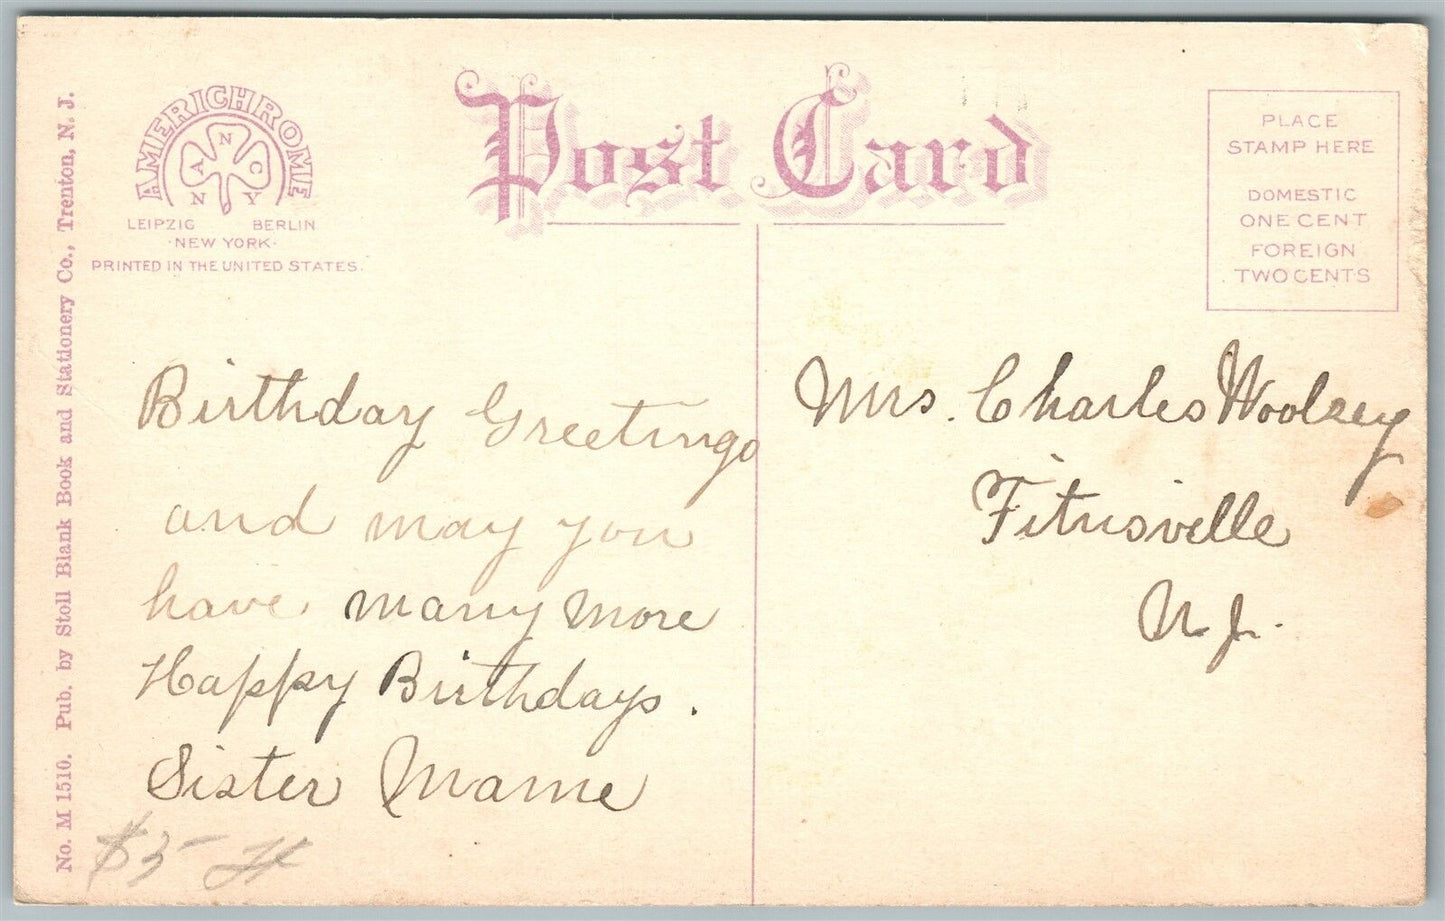 AMERICHROME
N
A C
N Y
LEIPZIG BERLIN
·NEW YORK·
PRINTED IN THE UNITED STATES.
Post Card
PLACE
STAMP HERE
DOMESTIC
ONE CENT
FOREIGN
TWO CENTS
No. M 1510. Pub. by Stoll Blank Book and Stationery Co., Trenton, N. J.
Birthday Greetings
and may you
have many more
Happy Birthdays.
Sister Mame
$5
Mrs. Charles Woolsey
Titusville
N. J.